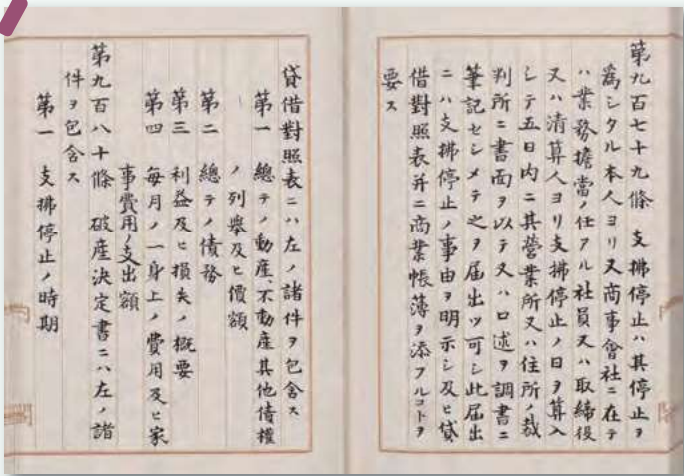 第九百七十九條 支拂停止ハ其停止ヲ
爲シタル本人ヨリ又商事會社ニ在テ
ハ業務擔當ノ任アル社員又ハ取締役
又ハ清算人ヨリ支拂停止ノ日ヲ算入
シテ五日内ニ其營業所又ハ住所ノ裁
判所ニ書面ヲ以テ又ハ口述ヲ調書ニ
筆記セシメテ之ヲ届出ツ可シ此届出
ニハ支拂停止ノ事由ヲ明示シ及ヒ貸
借對照表并ニ商業帳薄ヲ添フルコトヲ
要ス
貸借對照表ニハ左ノ諸件ヲ包含ス
第一 總テノ動産、不動産其他債權
ノ列擧及ヒ價額
第二 總テノ債務
第三 利益及ヒ損失ノ概要
第四 毎月ノ一身上ノ費用及ヒ家
事費用ノ支出額
第九百八十條 破産決定書ニハ左ノ諸
件ヲ包含ス
第一 支拂停止ノ時期